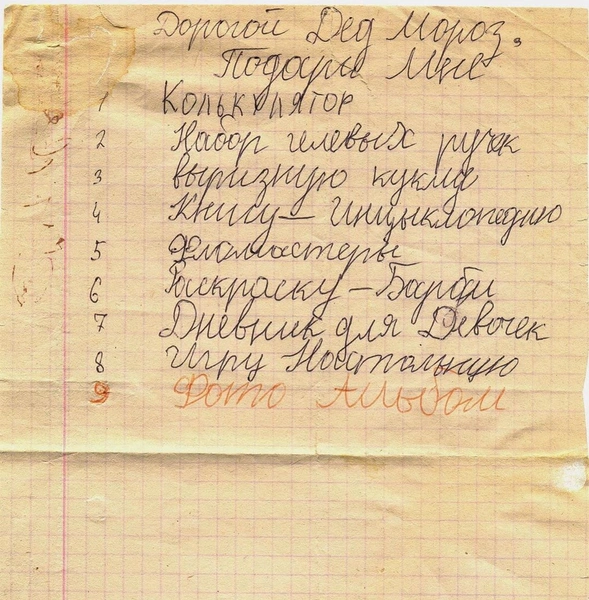 Дорогой Дед Мороз.
Подари Мне
1 Колькулятор
2 Набор гелевых ручек
3 выризную куклу
4 Книгу – Инцыклопедию
5 Фломастеры
6 Раскраску – Барби
7 Дневник для Девочек
8 Игру Настольную
9 Фото Альбом